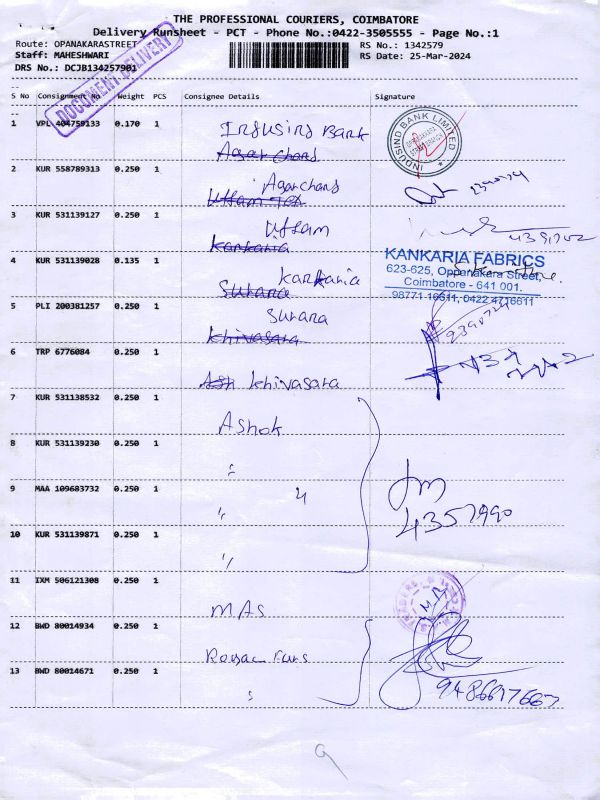 THE PROFESSIONAL COURIERS, COIMBATORE
Delivery Runsheet - PCT - Phone No.:0422-3505555 - Page No.:1
Route: OPANAKARASTREET RS No.: 1342579
Staff: MAHESHWARI RS Date: 25-Mar-2024
DRS No.: DCJB134257901
DOCUMENT DELIVERY
S No Consignment No Weight PCS Consignee Details Signature
1 VPL 404759133 0.170 1 Indusind Bank
INDUSIND BANK LIMITED
Agar Chand
2 KUR 558789313 0.250 1 Agarchand
Uttam Tex
3 KUR 531139127 0.250 1 Uttam
Kankaria
4 KUR 531139028 0.135 1 Kankaria
KANKARIA FABRICS
623-625, Oppanakara Street,
Coimbatore - 641 001.
98771 16611, 0422 4716611
Surana
5 PLI 200381257 0.250 1 Surana
Khivasara
6 TRP 6776084 0.250 1 Ash Khivasara
7 KUR 531138532 0.250 1 Ashok
8 KUR 531139230 0.250 1 "
9 MAA 109683732 0.250 1 "
4357990
10 KUR 531139871 0.250 1 "
11 IXM 506121308 0.250 1 MAS
12 BWD 80014934 0.250 1 Royal Furs
13 BWD 80014671 0.250 1 "